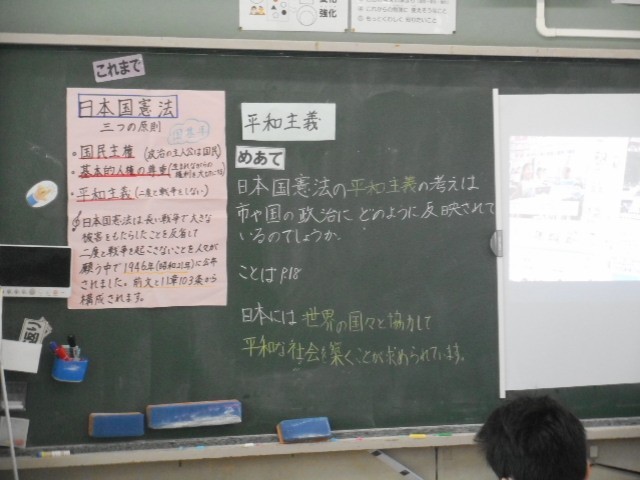 強化
これまで
日本国憲法
三つの原則
・国民主権 (政治の主人公は国民)
・基本的人権の尊重
・平和主義 (二度と戦争をしない)
日本国憲法は長い戦争で大きな
被害をもたらしたことを反省して
二度と戦争を起こさないことを人々が
願う中で1946年(昭和21年)に公布
されました。前文と11章103条から
構成されます。
平和主義
めあて
日本国憲法の平和主義の考えは
市や国の政治に どのように反映されて
いるのでしょうか。
ことば P18
日本には 世界の国々と協力して
平和な社会を築くことが求められています。